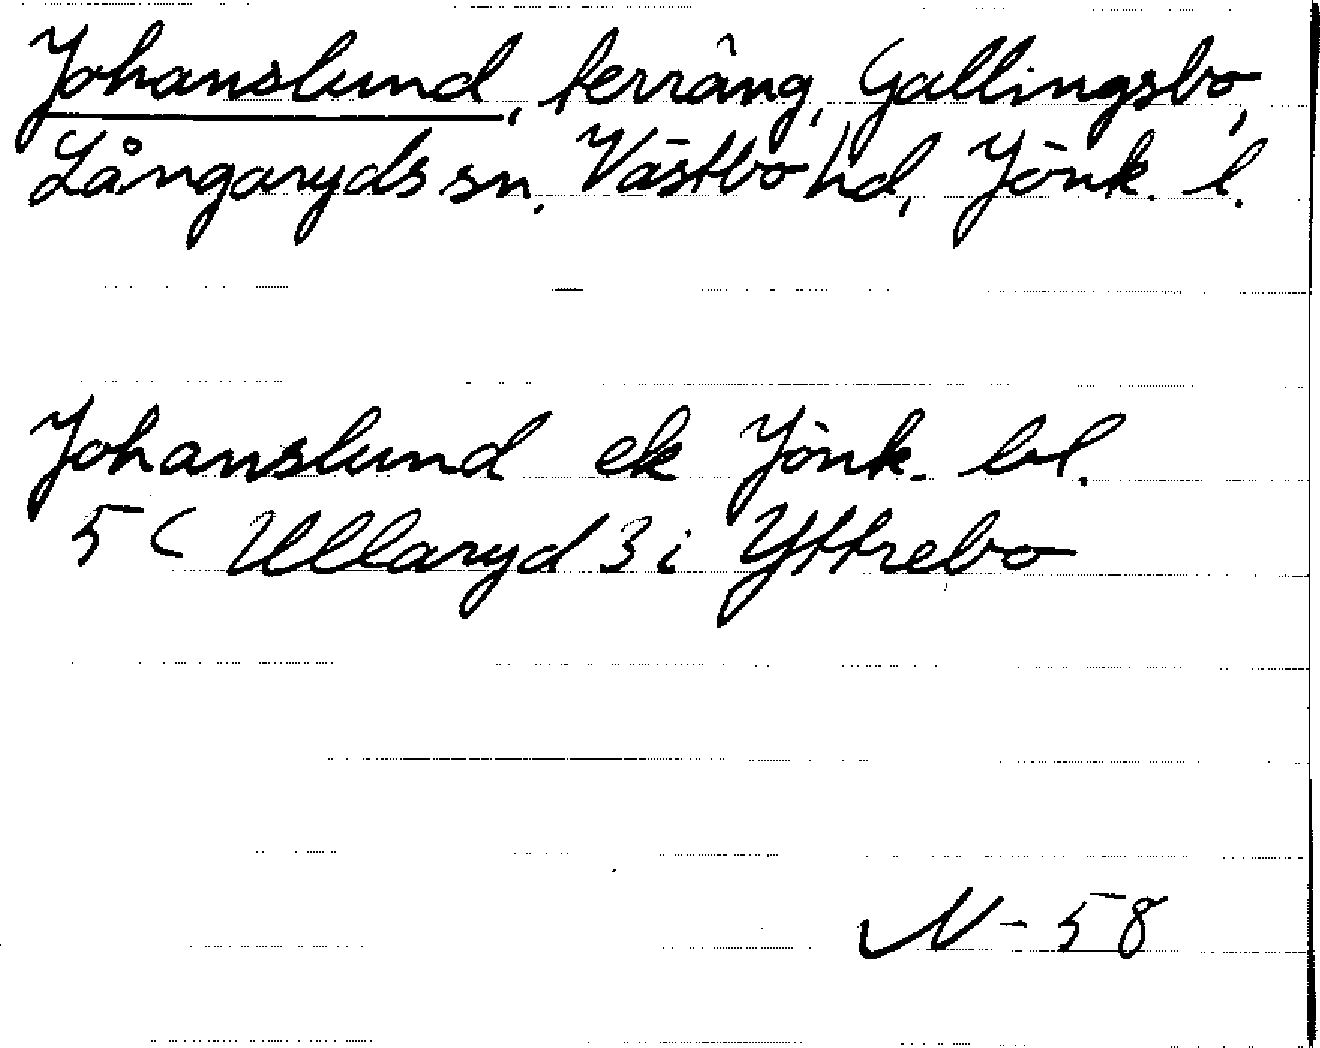 Johanslund, terräng, Gallingsbo,
Långaryds sn, Västbo hd, Jönk. l.
Johanslund ek Jönk. bl.
5 C Ullaryd 3 i Yttrebo
N - 58